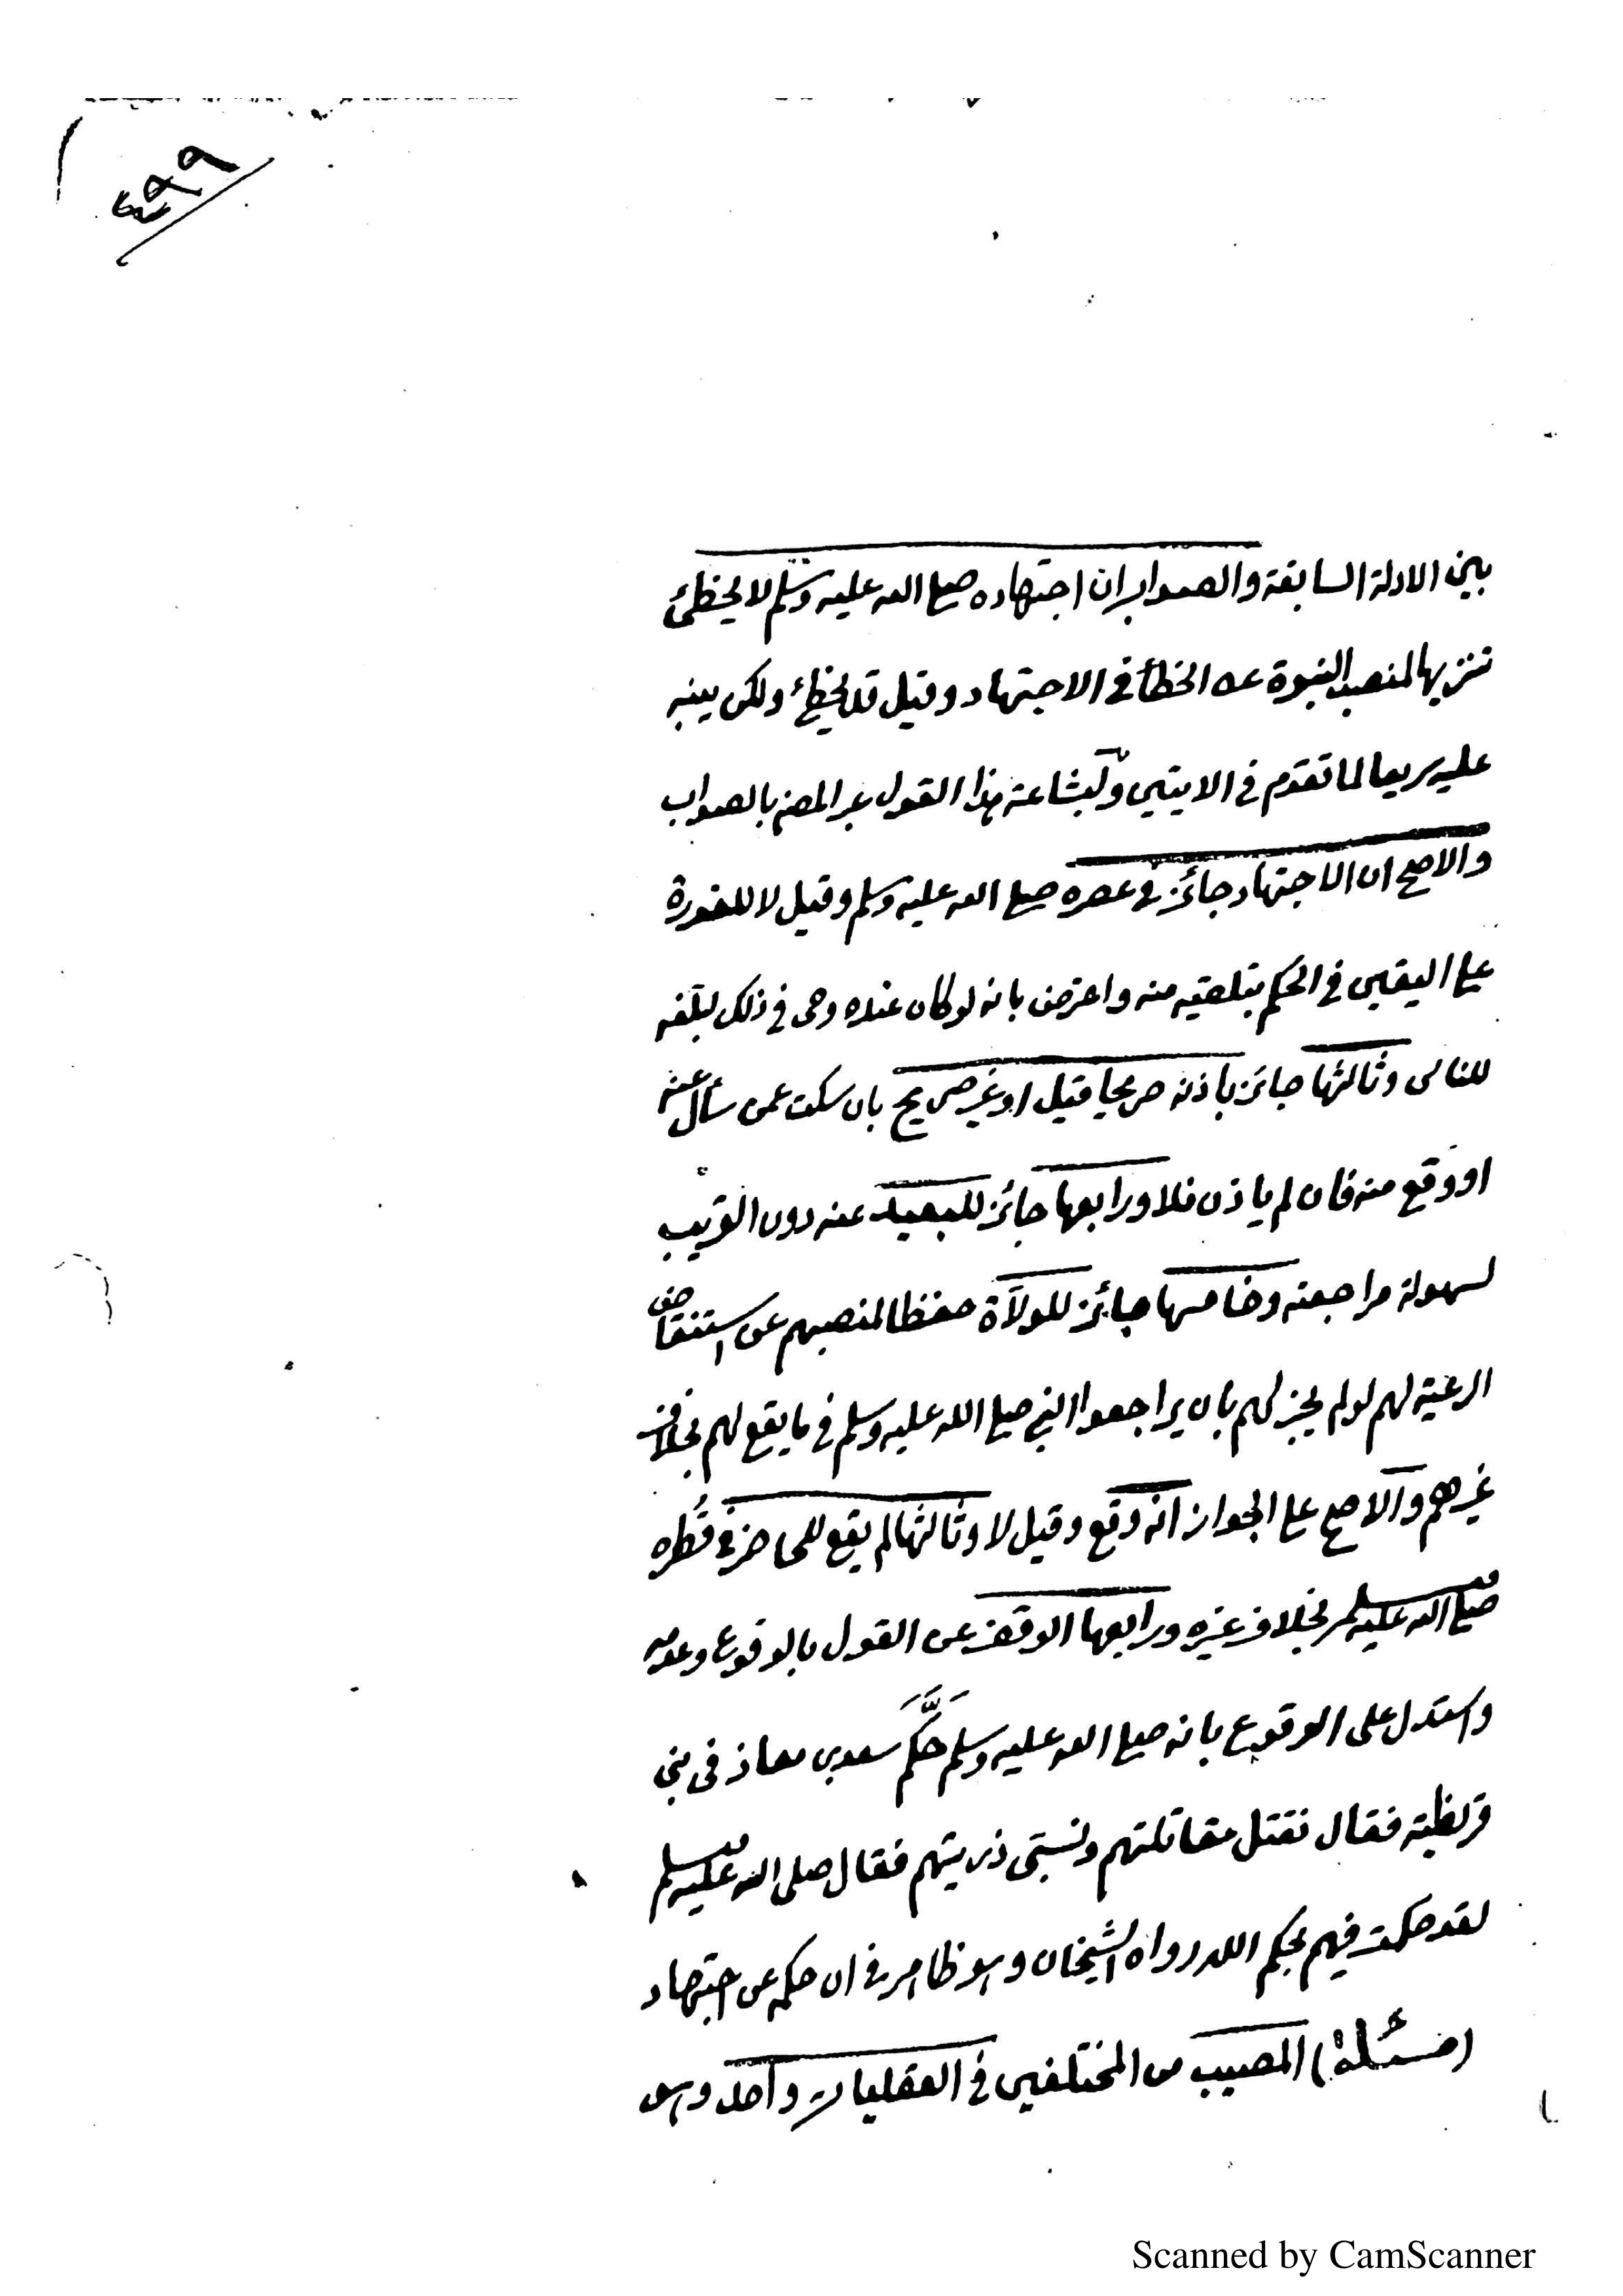 ٤٩٩
بين الادلة السابقة والصواب ان اجتهاده صلى الله عليه وسلم لا يخطئ
تنزيها لمنصب النبوة عن الخطأ في الاجتهاد وقيل قد يخطئ ولكن ينبه
عليه سريعا لما تقدم في الايتين ولبشاعة هذا القول عبر المصنف بالصواب
والاصح ان الاجتهاد جائز في عصره صلى الله عليه وسلم وقيل لا للقدرة
على اليقين في الحكم بتلقيه منه واعترض بانه لو كان عنده وحي في ذلك لبلغه
للناس وثالثها جائز باذنه صريحا قيل او غير صريح بان سكت عمن سأل عنه
او وقع منه فان لم ياذن فلا ورابعها جائز للبعيد عنه دون القريب
لسهولة مراجعته وخامسها جائز للولاة حفظا لمنصبهم عن استنقاص
الرعية لهم لو لم يجز لهم بان يراجعوا النبي صلى الله عليه وسلم في ما يقع لهم بخلاف
غيرهم والاصح على الجواز انه وقع وقيل لا وثالثها لم يقع للحاضر في قُطره
صلى الله عليه وسلم بخلاف غيره ورابعها الوقف عن القول بالوقوع وعدمه
واستدل على الوقوع بانه صلى الله عليه وسلم حَكَّمَ سعد بن معاذ في بني
قريظة فقال نقتل مقاتلتهم ونسبى ذريتهم فقال صلى الله عليه وسلم
لقد حكمت فيهم بحكم الله رواه الشيخان وهو ظاهر في ان حكمه عن اجتهاد
(مسئلة) المصيب من المختلفين في العقليات واحد وهو
Scanned by CamScanner